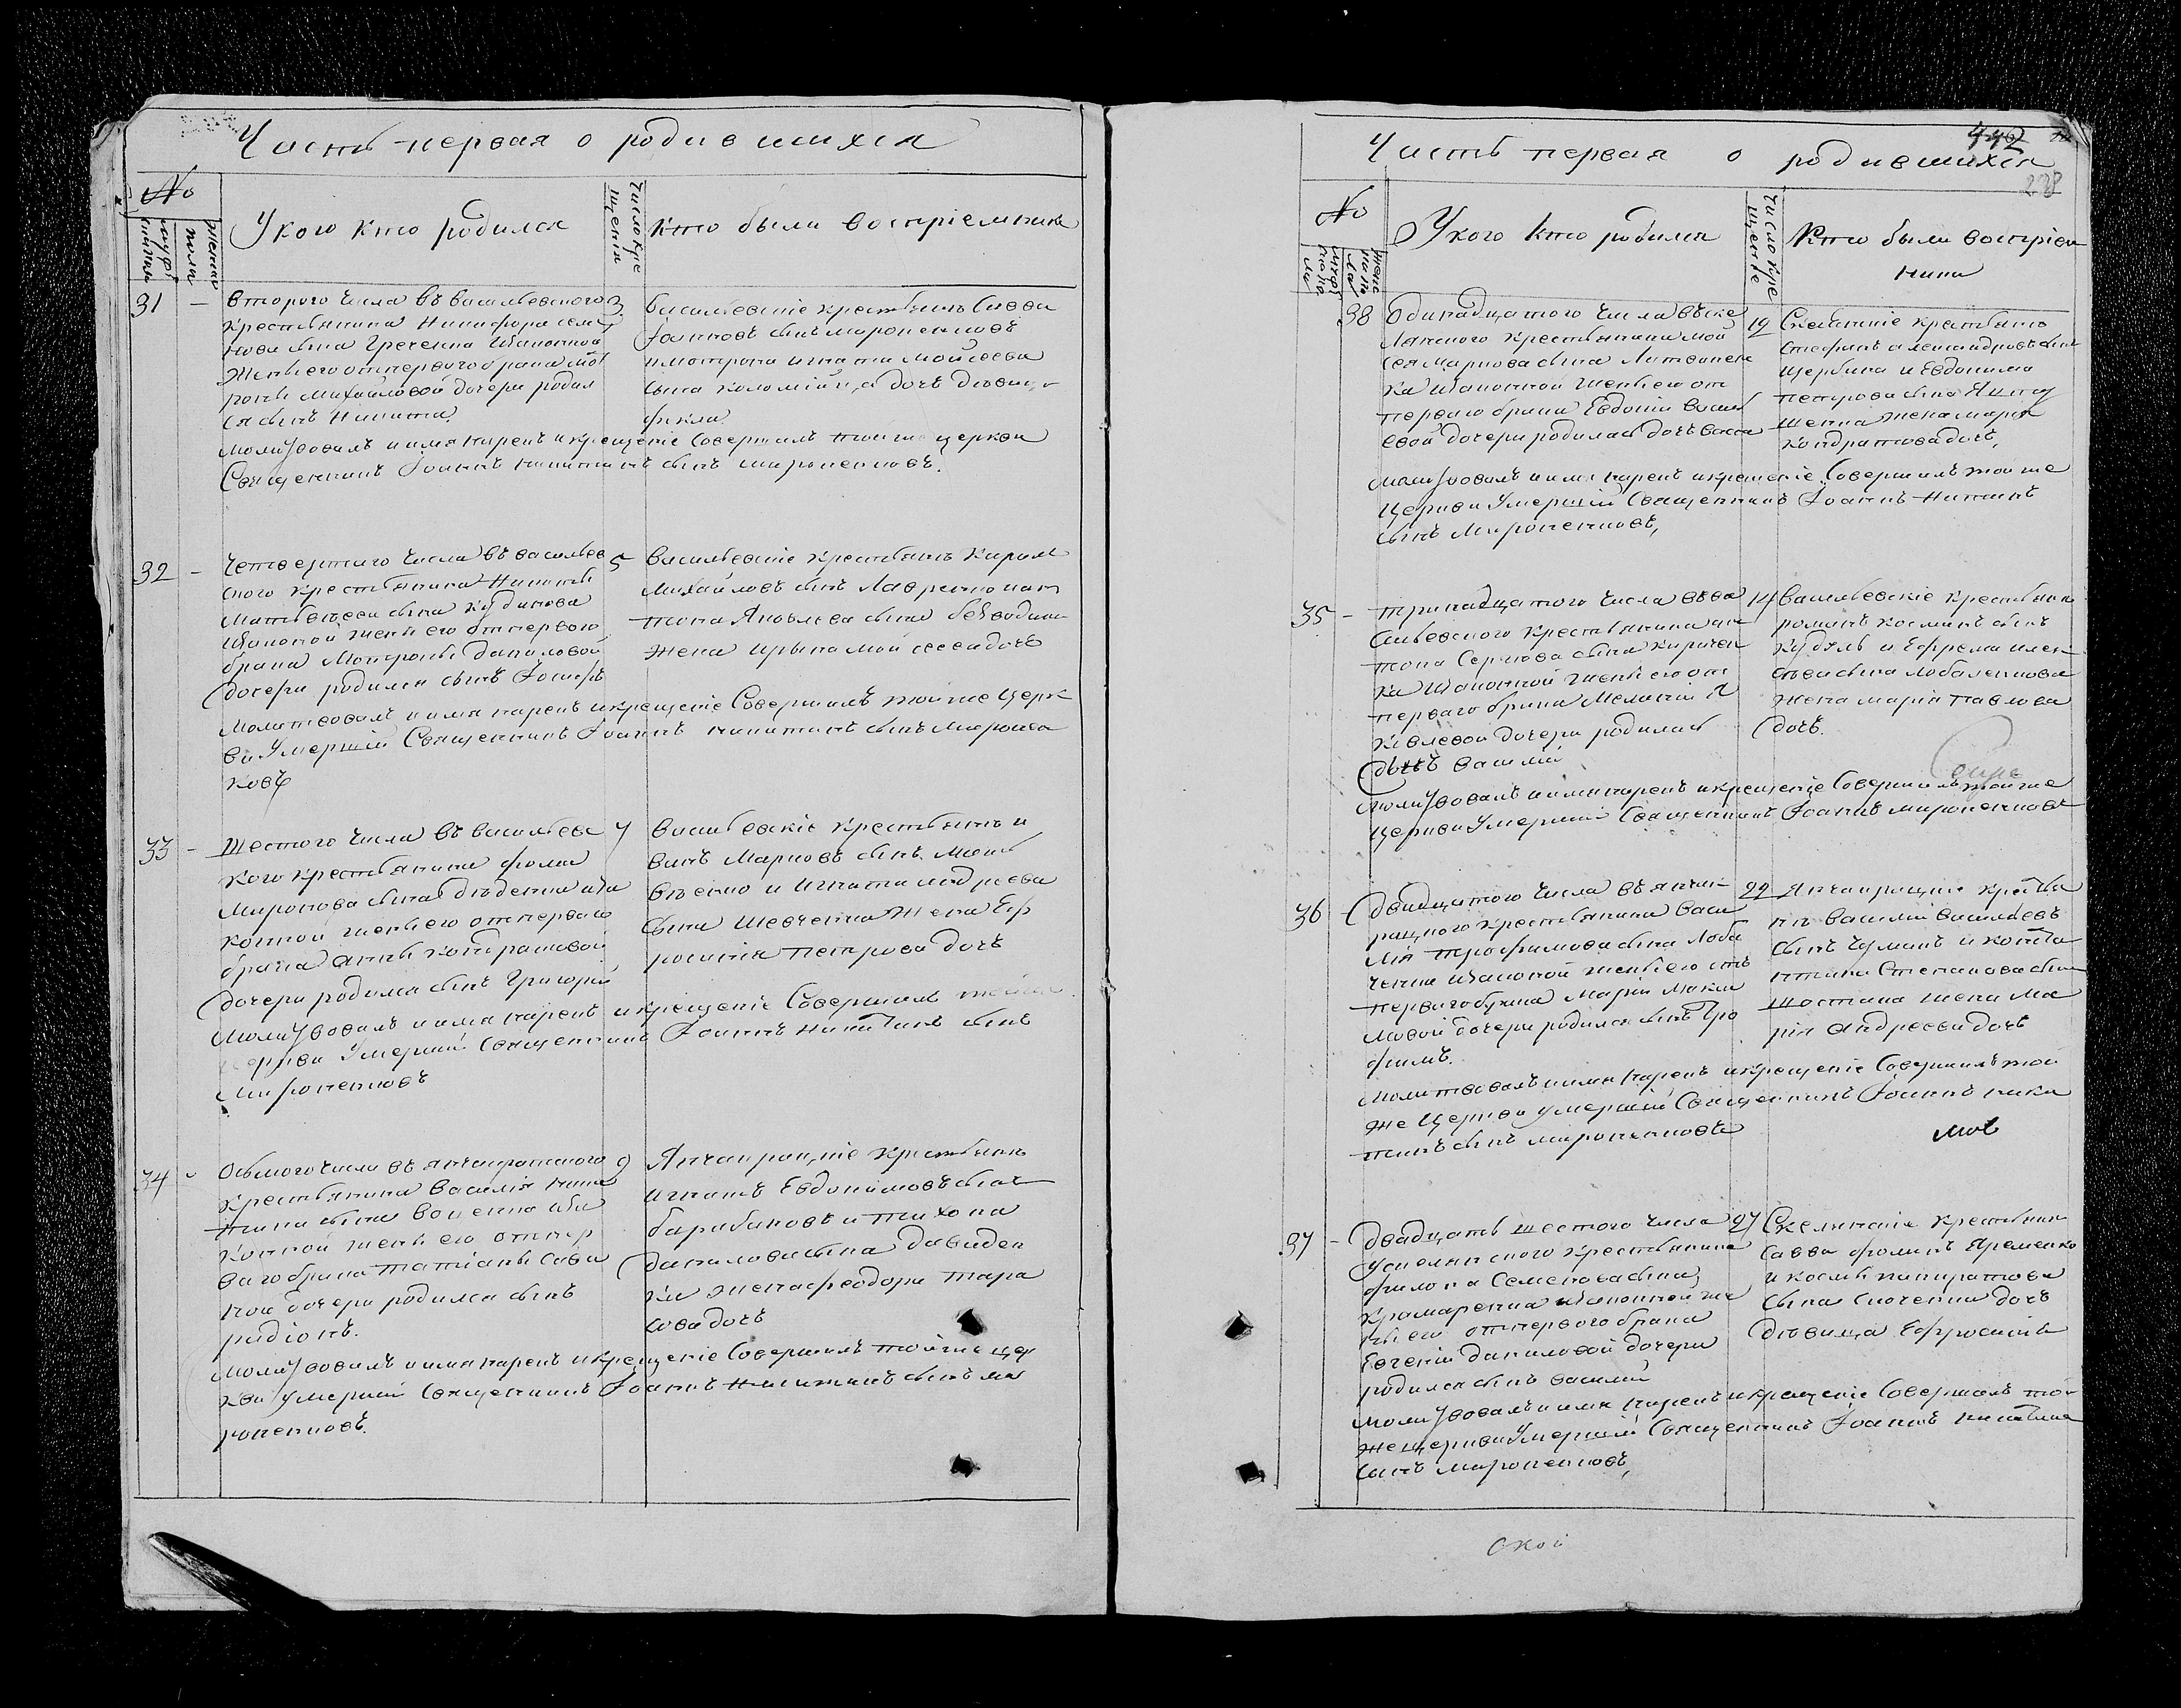 Часть первая о родившихся
№
У кого кто родился
число кре
щенія
Кто были воспріемники
31 -
второго числа въ васильевского
крестьянина Никифора семе
нова сына Гречечка Изаконной
жены его от первого брака мот
роны Михайловой дочери родил
ся сынъ Никита
3
васильевскіе крестьянъ Савва
Іоанновъ сынъ мироненковъ
и мотрона игната мойсеева
сына коломійца дочь девица
фекла
молитвовалъ и имя нарекъ и крещеніе Совершилъ тойже церкви
Священникъ Іоаннъ никитинъ сынъ мироненковъ.
32 -
Четвертого числа въ васильев
ского крестьянина Никиты
Матвѣева сына Кудинова
Изаконой жены его от первого
брака Мотроны даниловой
дочери родился сынъ Іосифъ
5
васильевскіе крестьянъ Кирил
Михайловъ сынъ Лавренко и ан
тона Яковлева сына безводина
жена ирына мойсеева дочь
молитвовалъ и имя нарекъ и крещеніе Совершилъ тойже церк
ви Умершій Священникъ Іоаннъ никитинъ сынъ Миронен
ковъ
33 -
Шестого числа въ васильевс
кого крестьянина фомы
Миронова сына бѣденка иза
конной жены его от первого
брака анны кондратовой
дочери родился сынъ Григорій
7
васильевскіе крестьянъ и
ванъ Марковъ сынъ Мат
вѣенко и Игната андреева
сына Шевченка жена Еф
росинія петрова дочь
Молитвовалъ и имя нарекъ и крещеніе Совершилъ тойже
церкви Умершій Священникъ Іоаннъ Никитинъ сынъ
Мироненковъ
34 -
Осьмого числа въ янчакракского
крестьянина василія ники
тина сына воценка иза
конной жены его от пер
ваго брака татіаны сави
ной дочери родился сынъ
родіонъ.
9
Янчакракскіе крестьянъ
игнатъ Евдокимовъ сынъ
барабановъ и тихона
данилова сына давиден
ка жена феодора тара
сова дочь
Молитвовалъ и имя нарекъ и крещеніе Совершилъ тойже цер
кви умершій Священникъ Іоаннъ Никитинъ сынъ ми
роненковъ.
442
Часть первая о родившихся
№
У кого кто родился
число кре
щенія
Кто были воспріем
ники
38
Одинадцатого числа въ ске
лянского крестьянина мой
сея маркова сына Литвинен
ка Изаконной жены его от
перваго брака Евдокіи васил
евой дочери родилась дочь васса
12
Скелянскіе крестьянъ
стефанъ александровъ сынъ
щербина и Евдокима
петрова сына Яцко
шенка жена марія
кондратова дочь,
молитвовалъ и имя нарекъ и крещеніе Совершилъ тойже
Церкви Умершій Священникъ Іоаннъ Никитинъ
сынъ Мироненковъ,
35 -
тринадцатого числа въ ва
сильевского крестьянина ан
тона Сергіова сына Киричен
ка Изаконной жены его от
перваго брака Меланіи Я
ковлевой дочери родился
сынъ василій
14
васильевскіе крестьянъ
романъ косминъ сынъ
Кудль и Ефрема алек
сѣева сына лобаленкова
жена марія павлова
дочь.
молитвовалъ и имя нарекъ и крещеніе Совершилъ тойже
церкви Умершій Священникъ Іоаннъ мироненковъ
36 -
двадцатого числа въ янчак
рацкого крестьянина васи
лія трофимова сына Лоба
ченка Изаконой жены его отъ
перваго брака Маріи Макси
мовой дочери родился сынъ тро
фимъ.
22
Янчакрацкіе крестья
нъ василій васильевъ
сынъ Чуманъ и конста
нтина Степанова сына
шостака жена Ма
рія андреева дочь
молитвовалъ и имя нарекъ и крещеніе Совершилъ той
же Церкви умершій Священникъ Іоаннъ ники
тинъ сынъ мироненковъ
37 -
двадцать шестого числа
успенского крестьянина
филипа Семенова сына
Крамаренка Изаконной же
ны его от первого брака
Евгеніи даниловой дочери
родился сынъ василій
27
Скелянскіе крестьянъ
савва фоминъ Яременко
и космы панкратова
сына Сноченка дочь
девица Ефросинія
Молитвовалъ и имя нарекъ и крещеніе Совершилъ той
же церкви Умершій Священникъ Іоаннъ никитинъ
сынъ мироненковъ,
ской